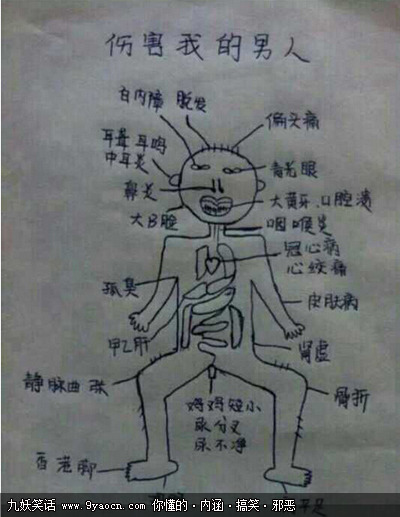 伤害我的男人
白内障 脱发
偏头痛
耳聋 耳鸣
中耳炎
青光眼
鼻炎
大黄牙.口腔溃
大B脸
咽喉炎
冠心病
心绞痛
狐臭
皮肤病
甲乙肝
肾虚
静脉曲张
骨折
鸡鸡短小
尿分叉
尿不净
香港脚
平足
九妖笑话 www.9yaocn.com 你懂的·内涵·搞笑·邪恶